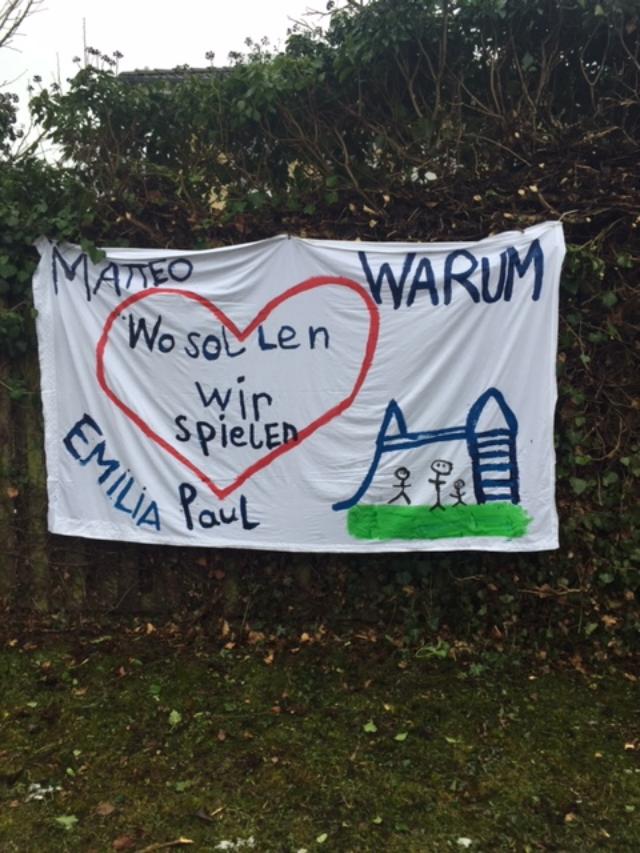 MATTEO
WARUM
Wo sollen
wir
spielen
EMILIA
Paul